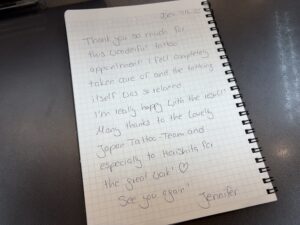 Thank you so much for
this wonderful tattoo
appointment! I felt completely
taken care of and the tattoing
itself was so relaxed.
I'm really happy with the result!
Many thanks to the lovely
Japan Tattoo Team and
especially to for
the great work! ♡
See you again! Jennifer